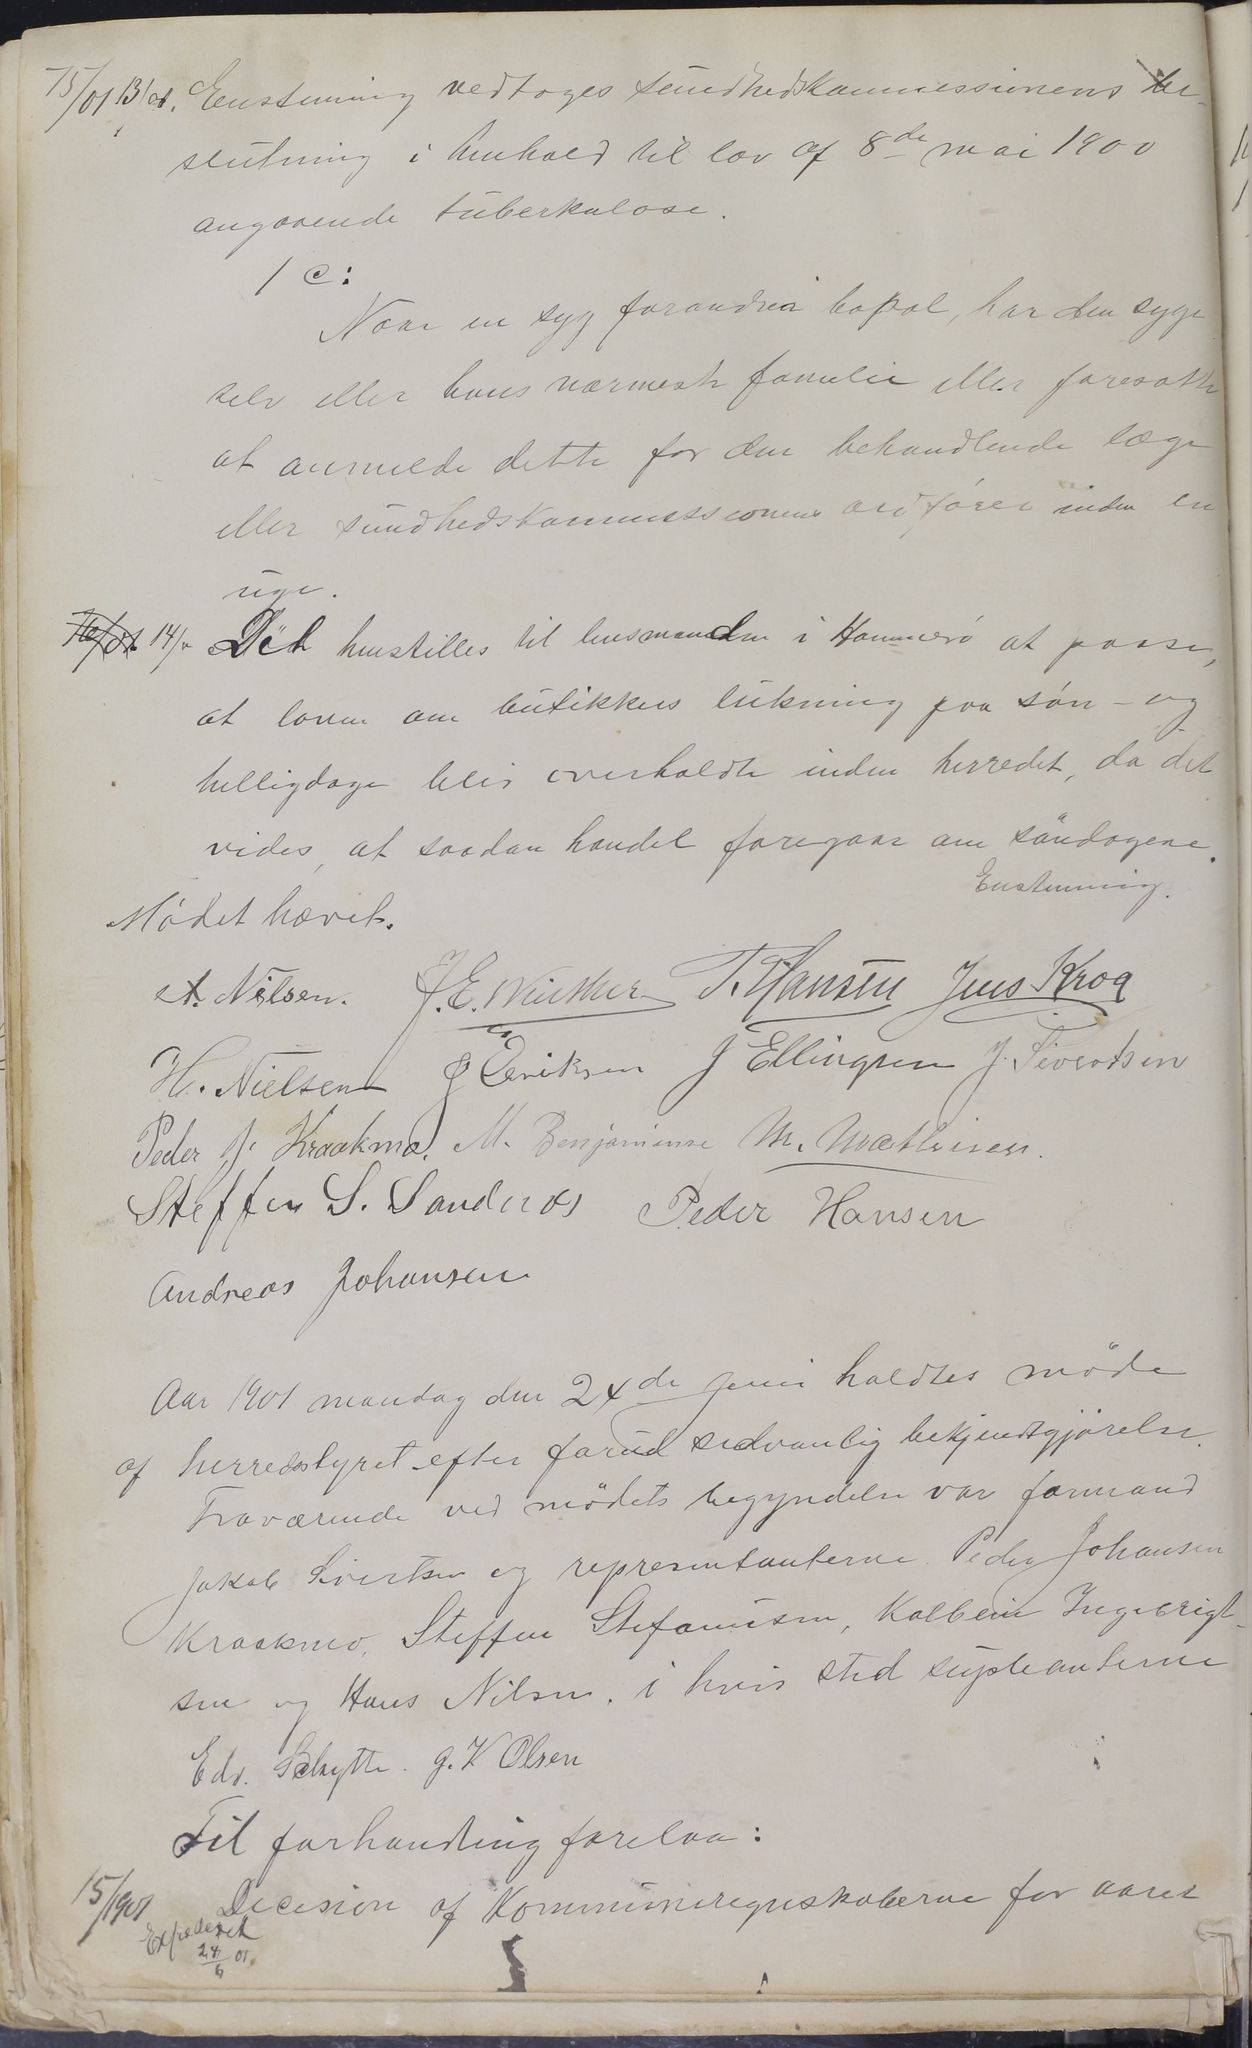 75/01 13/01. Eenstemmig vedtoges sundhedskommissionens be-
slutning i henhold til lov af 8de mai 1900
angaaende tuberkulose.
1 c:
Naar en syg forandrer bopæl, har den syge
selv eller hans nærmeste familie eller foresatte
at anmelde dette for den behandlende læge
eller sundhedskommissionens ordfører inden en
uge.
76/01 14/01 Det henstilles til lensmanden i Hammerø at passe,
at loven om butikkers lukning paa søn- og
helligdage blir overholdt inden herredet, da det
vides, at saadan handel foregaar om søndagene.
Enstemmig.
Mødet hævet.
A. Nilsen. J. E. Winther T. Hansen Jens Krog
H. Nielsen J Eeriksen J Ellingsen J. Sivertsen
Peder J. Kraakmo. M. Benjaminse M. Mathisen.
Steffen S. Sandnæs Peder Hansen
Andreas Johansen
Aar 1901 mandag den 24de juni holdtes møde
af herredsstyret efter forud sedvanlig bekjendtgjørelse.
Fraværende ved mødets begyndelse var formand
Jakob Sivertsen og representanterne Peder Johansen
Kraakmo, Steffen Stefanusen, Kolbein Ingebrigt-
sen og Hans Nilsen, i hvis sted supleanterne
Edv. Schytte. G. K Olsen
Til forhandling forelaa:
15/1901 Decision af Kommuneregnskaberne for aaret
Expederet
24/6 01.